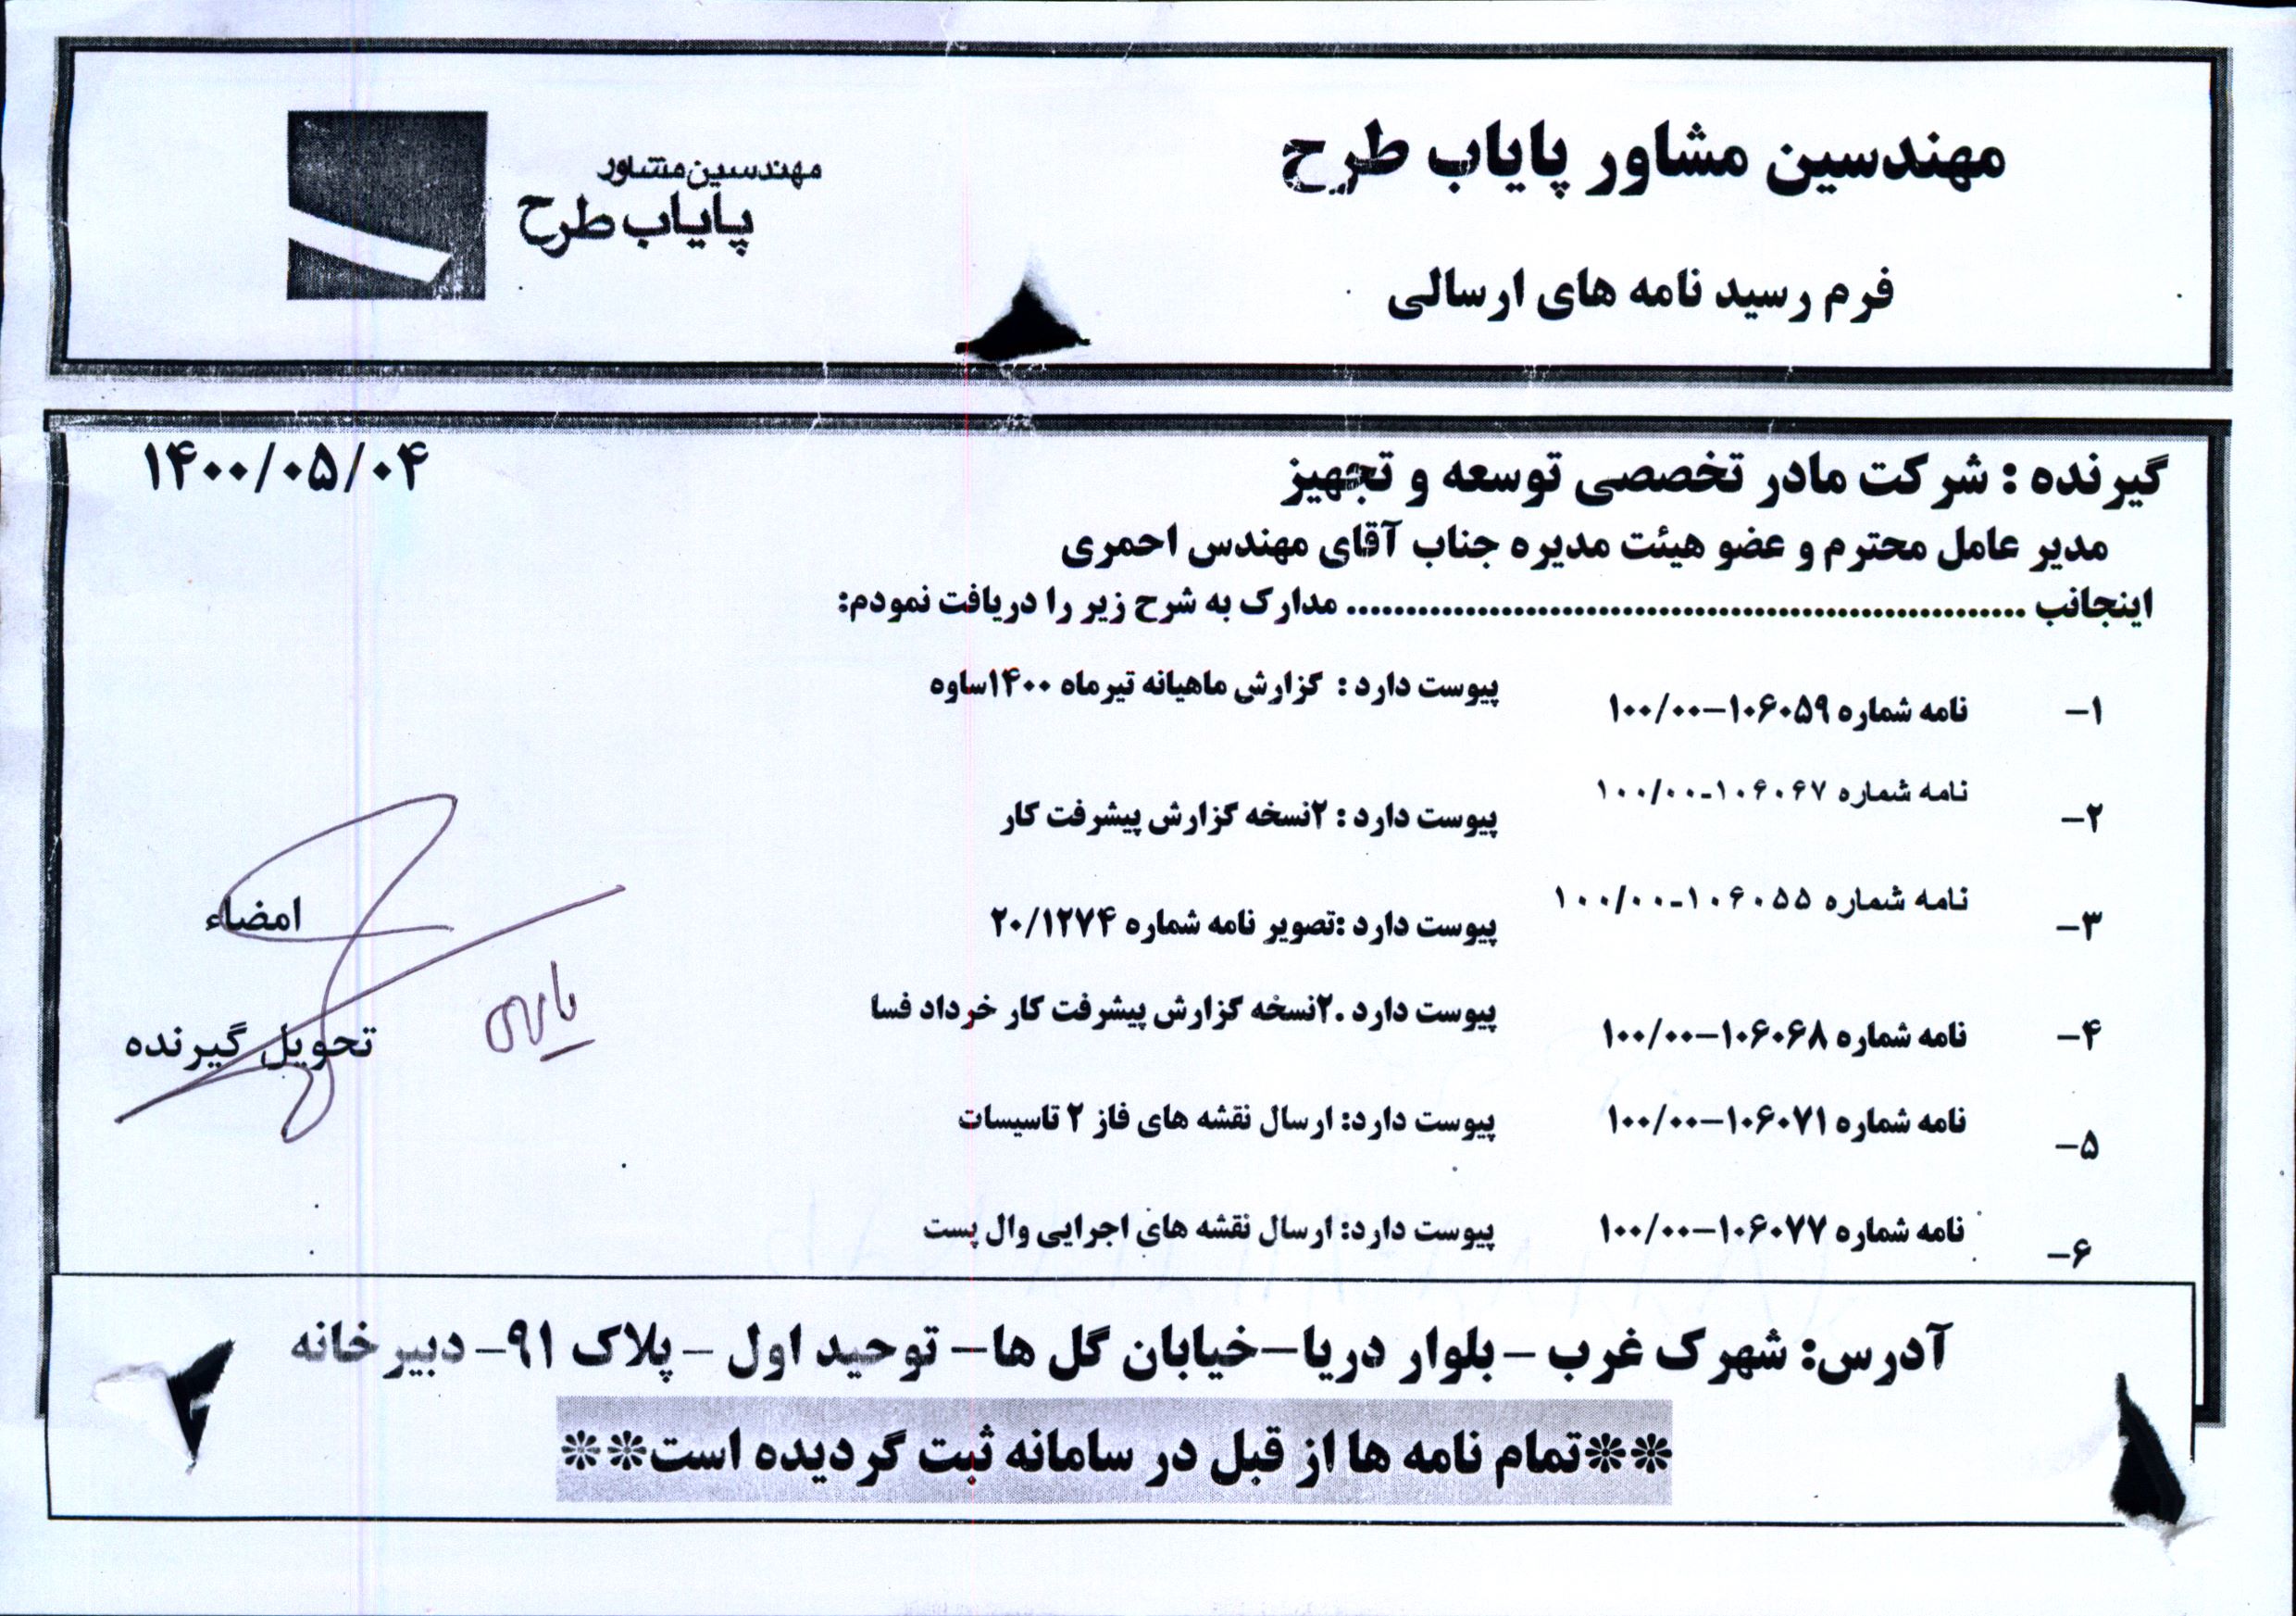 مهندسین مشاور پایاب طرح
مهندسین مشاور
پایاب طرح
فرم رسید نامه های ارسالی
۱۴۰۰/۰۵/۰۴
گیرنده : شرکت مادر تخصصی توسعه و تجهیز
مدیر عامل محترم و عضو هیئت مدیره جناب آقای مهندس احمری
اینجانب ........................................................ مدارک به شرح زیر را دریافت نمودم:
۱- نامه شماره ۱۰۶۰۵۹-۱۰۰/۰۰ پیوست دارد : گزارش ماهیانه تیرماه ۱۴۰۰ساوه
۲- نامه شماره ۱۰۶۰۶۷-۱۰۰/۰۰ پیوست دارد : ۲نسخه گزارش پیشرفت کار
۳- نامه شماره ۱۰۶۰۵۵-۱۰۰/۰۰ پیوست دارد :تصویر نامه شماره ۲۰/۱۲۷۴
امضاء
۴- نامه شماره ۱۰۶۰۶۸-۱۰۰/۰۰ پیوست دارد .۲نسخه گزارش پیشرفت کار خرداد فسا
تحویل گیرنده
۵- نامه شماره ۱۰۶۰۷۱-۱۰۰/۰۰ پیوست دارد: ارسال نقشه های فاز ۲ تاسیسات
۶- نامه شماره ۱۰۶۰۷۷-۱۰۰/۰۰ پیوست دارد: ارسال نقشه های اجرایی وال پست
آدرس: شهرک غرب – بلوار دریا–خیابان گل ها– توحید اول – پلاک ۹۱– دبیرخانه
❊❊تمام نامه ها از قبل در سامانه ثبت گردیده است❊❊